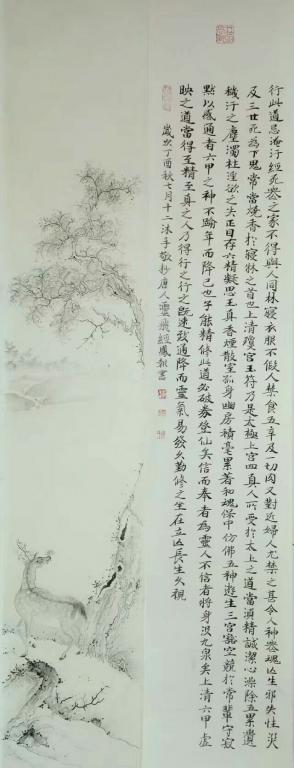 行此道忌淹汙經死喪之家不得與人同牀寢衣服不假人禁食五辛及一切肉又對近婦人尤禁之甚令人神喪魂亡生邪失性災
及三世死為下鬼常當燒香於寢牀之首也上清瓊宮玉符乃是太極上宮四真人所受於太上之道當須精誠潔心澡除五累遺
穢汙之塵濁杜淫欲之失正目存六精凝思玉真香煙散室孤身幽房積毫累著和魂保中仿佛五神遊生三宮豁空競於常輩守寂
默以感通者六甲之神不踰年而降己也子能精修此道必破券登仙矣信而奉者為靈人不信者將身沒九泉矣上清六甲虛
映之道當得至精至真之人乃得行之行之既速致通降而靈氣易發久勤修之坐在立亡長生久視
歲次丁酉秋七月十二沐手敬抄唐人靈飛經鳳報書